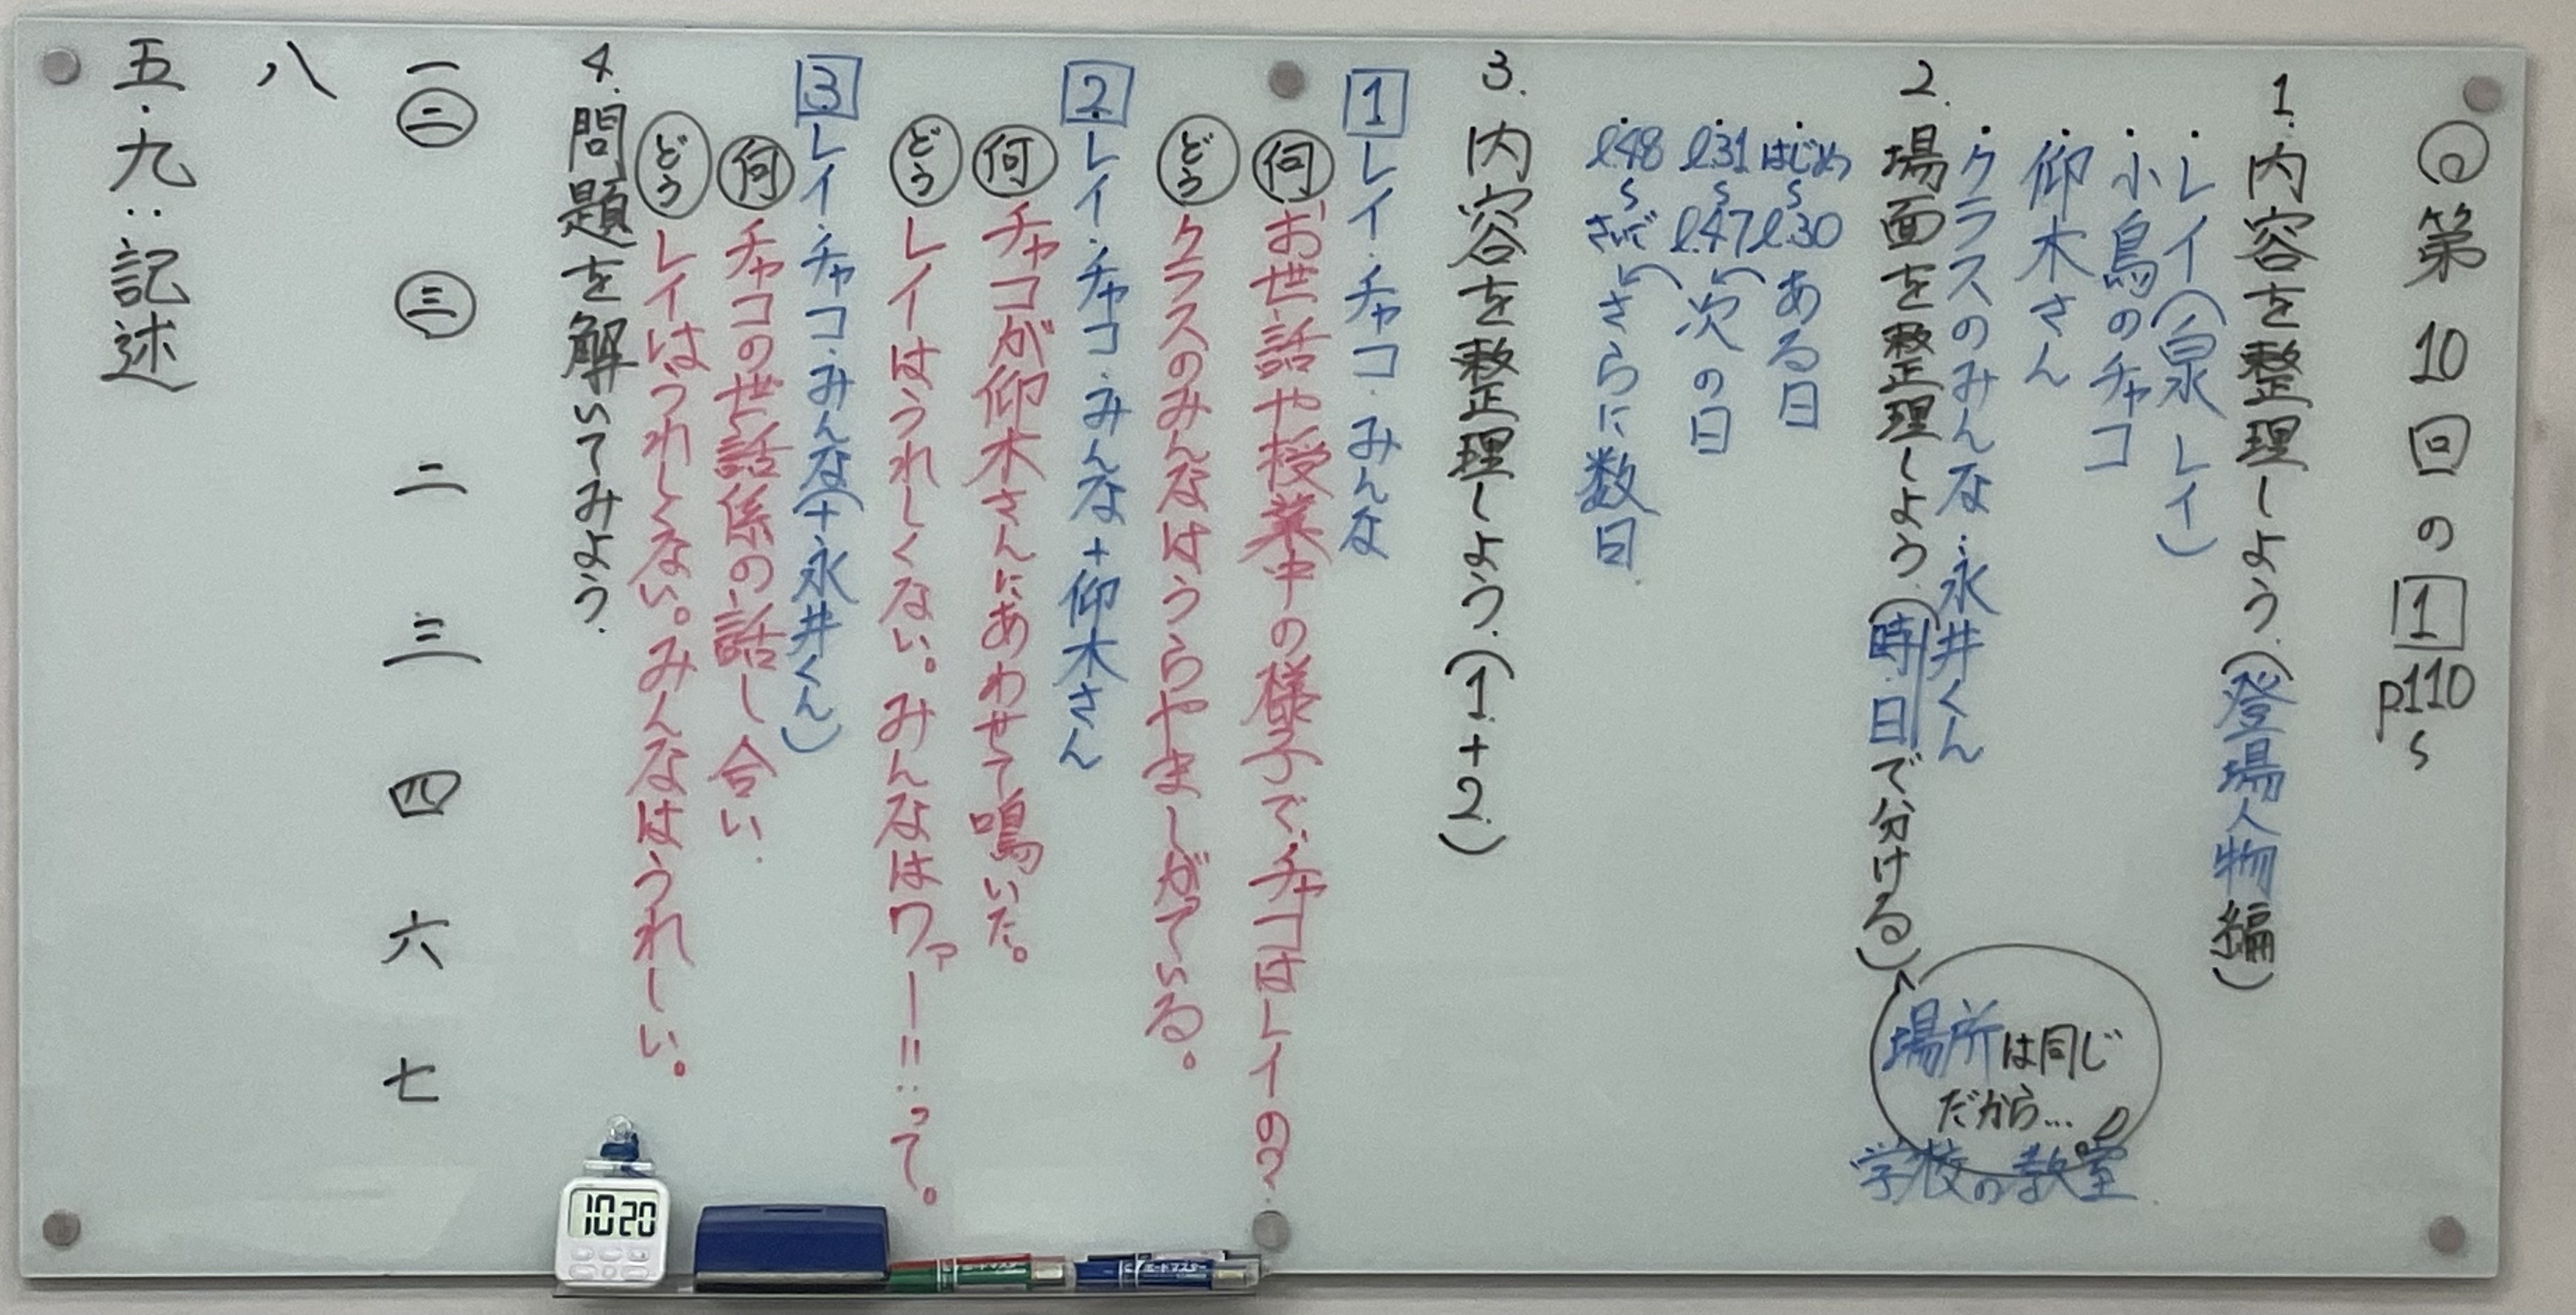 ◎第10回の1 p.110〜
1. 内容を整理しよう.(登場人物編)
・レイ(白泉レイ)
・小鳥のチャコ
・仰木さん
・クラスのみんな・永井くん
2. 場面を整理しよう.(時・日で分ける)
場所は同じ
だから…
学校の教室
・はじめ〜l.30 ある日
・l.31〜l.47 次の日
・l.48〜さいご さらに数日
3. 内容を整理しよう.(1.+2.)
1 レイ・チャコ・みんな
何 お世話や授業中の様子で、チャコはレイの?
どう クラスのみんなはうらやましがっている。
2 レイ・チャコ・みんな+仰木さん
何 チャコが仰木さんにあわせて鳴いた。
どう レイはうれしくない。みんなはワァー!!…って。
3 レイ・チャコ・みんな(+永井くん)
何 チャコの世話係の話し合い.
どう レイはうれしくない。みんなはうれしい。
4. 問題を解いてみよう.
一 二 三 二 三 四 六 七
八
五・九:記述
10 20